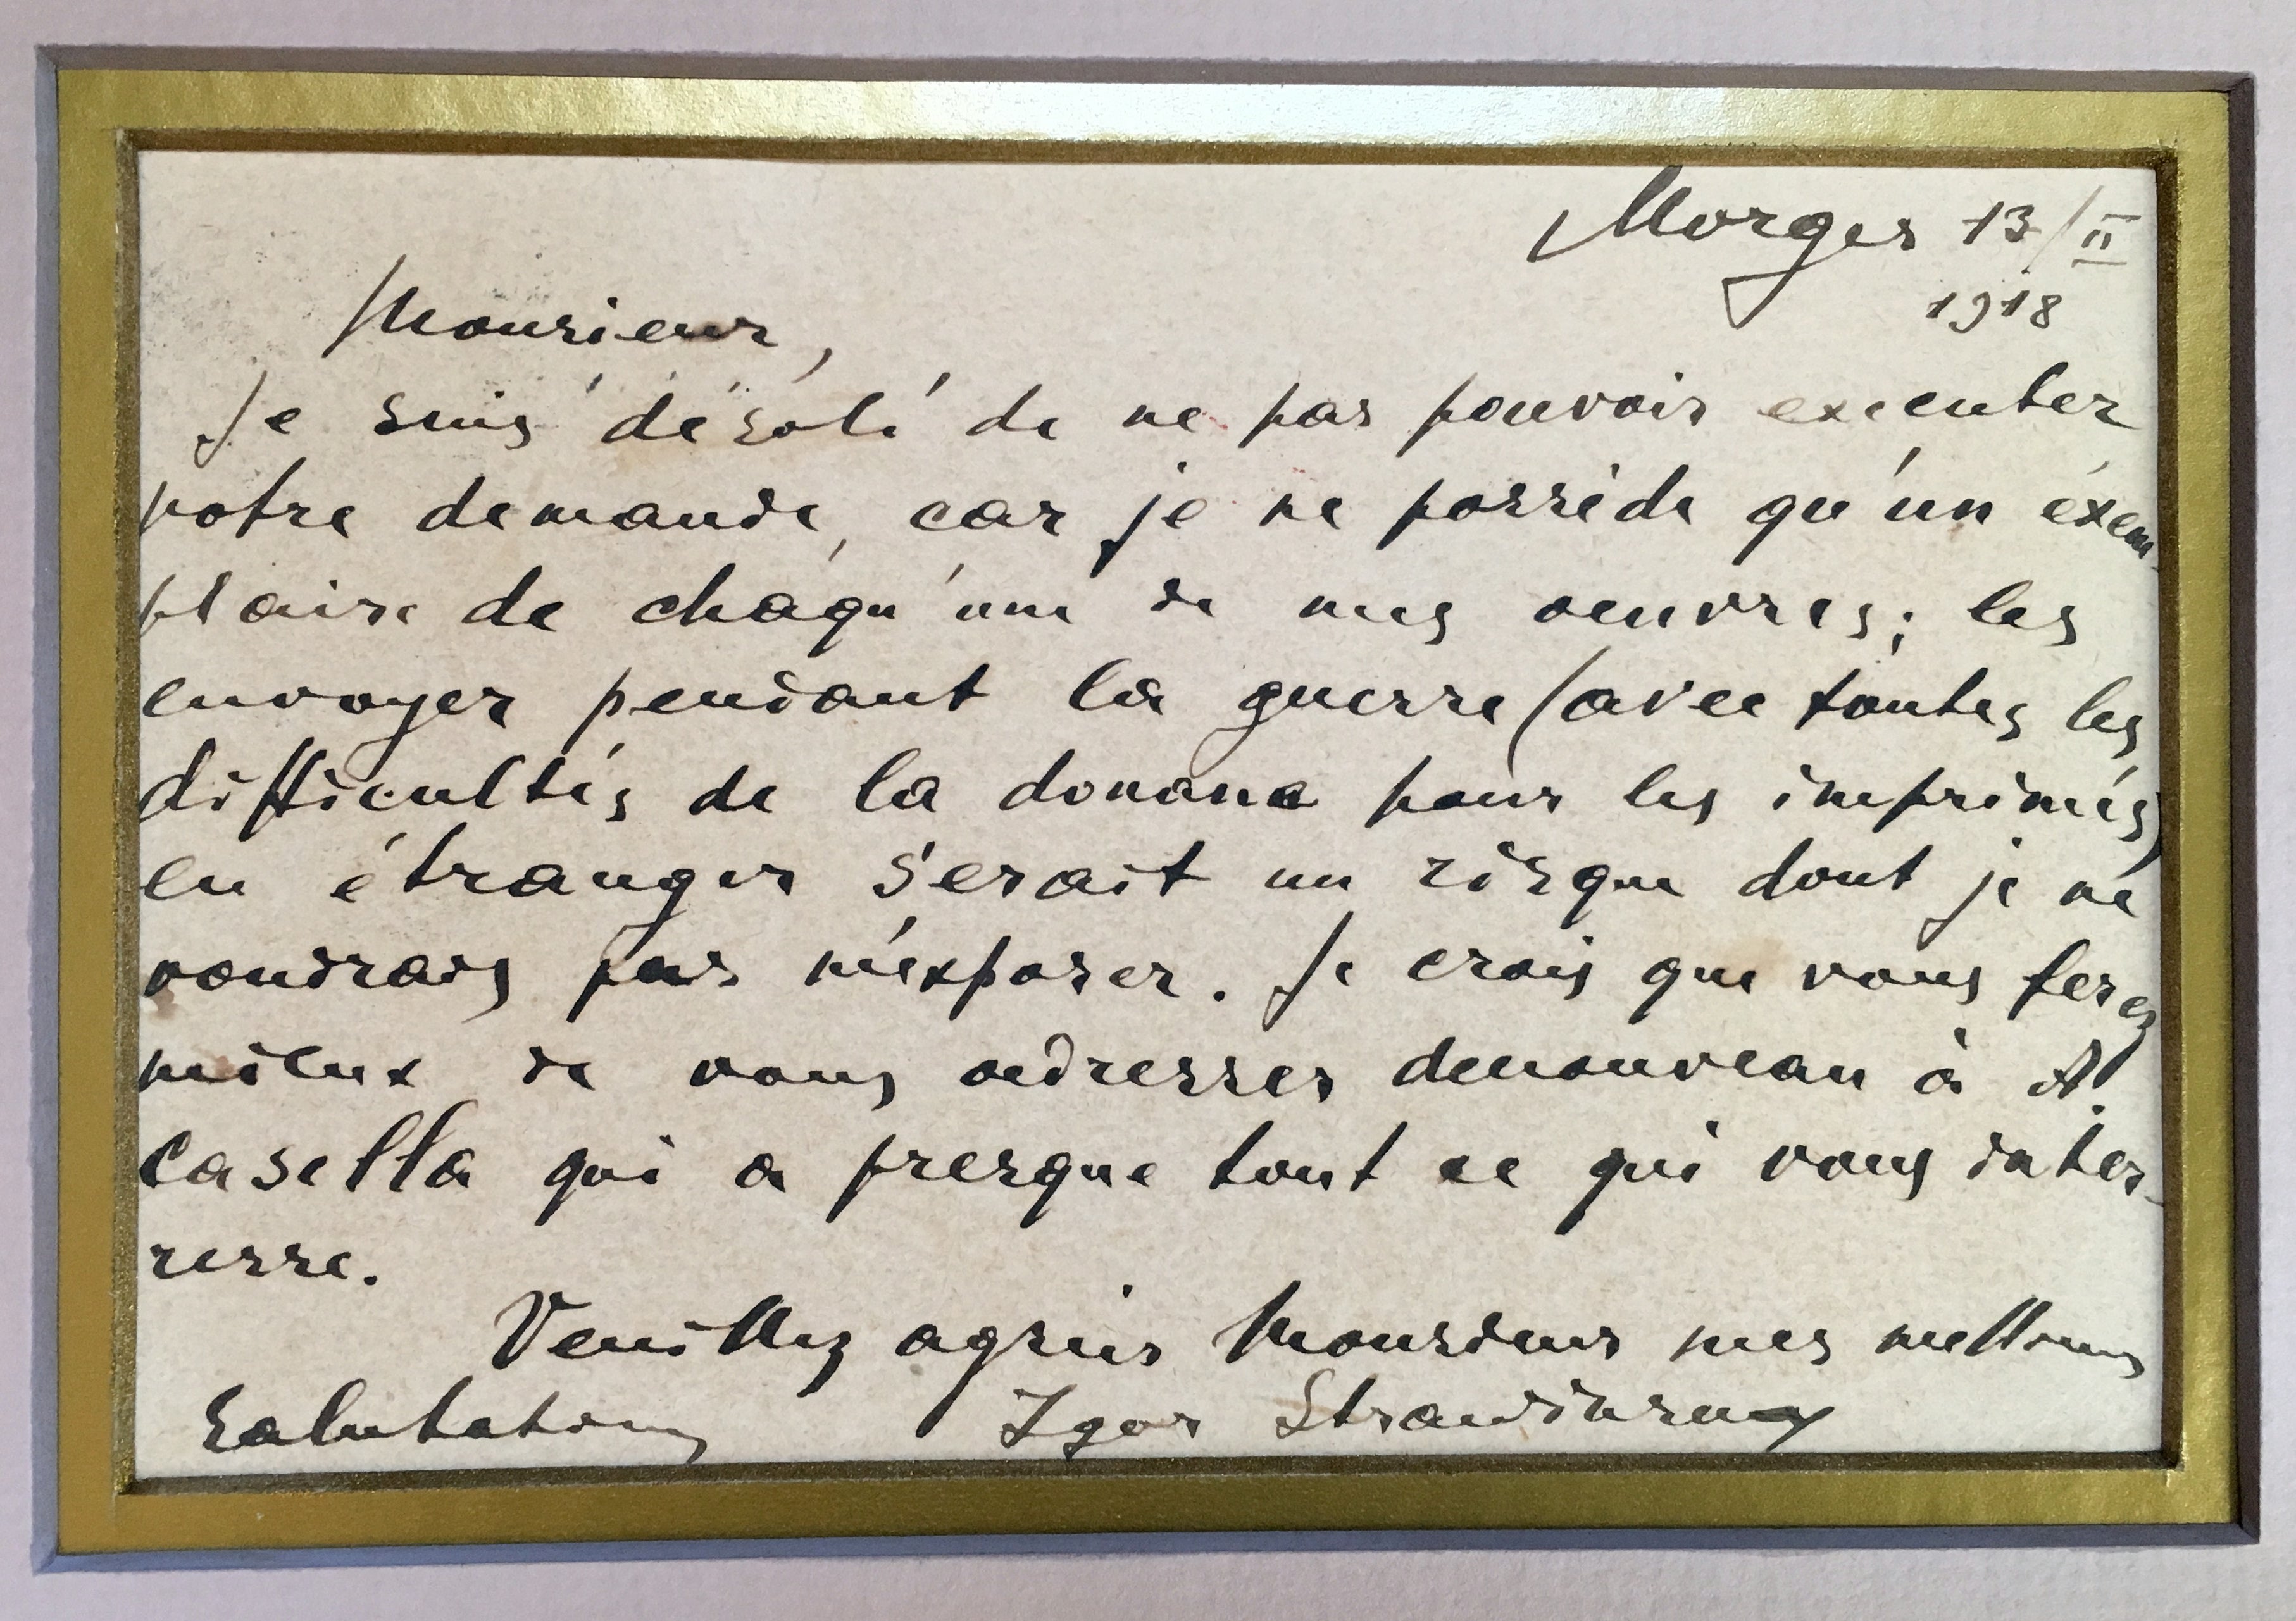 Morges 13/II
1918
Monsieur,
Je suis désolé de ne pas pouvoir executer
votre demande, car je ne possède qu'un éxem-
plaire de chaqu'une de mes oeuvres; les
envoyer pendant la guerre (avec toutes les
difficultés de la douane pour les imprimés)
en étranger serait un risque dont je ne
voudrais pas m'exposer. Je crois que vous ferez
mieux de vous adresser denouveau à A.
Casella qui a presque tout ce qui vous inter-
resse.
Veuillez agréer Monsieur mes meilleures
salutations Igor Strawinsky